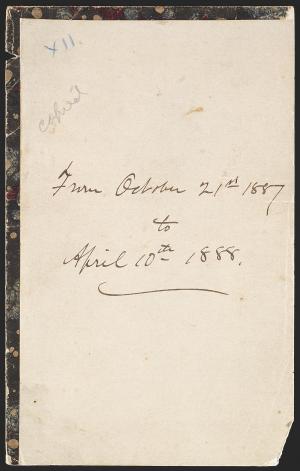 XII.
copied
From October 21st 1887
to
April 10th 1888.